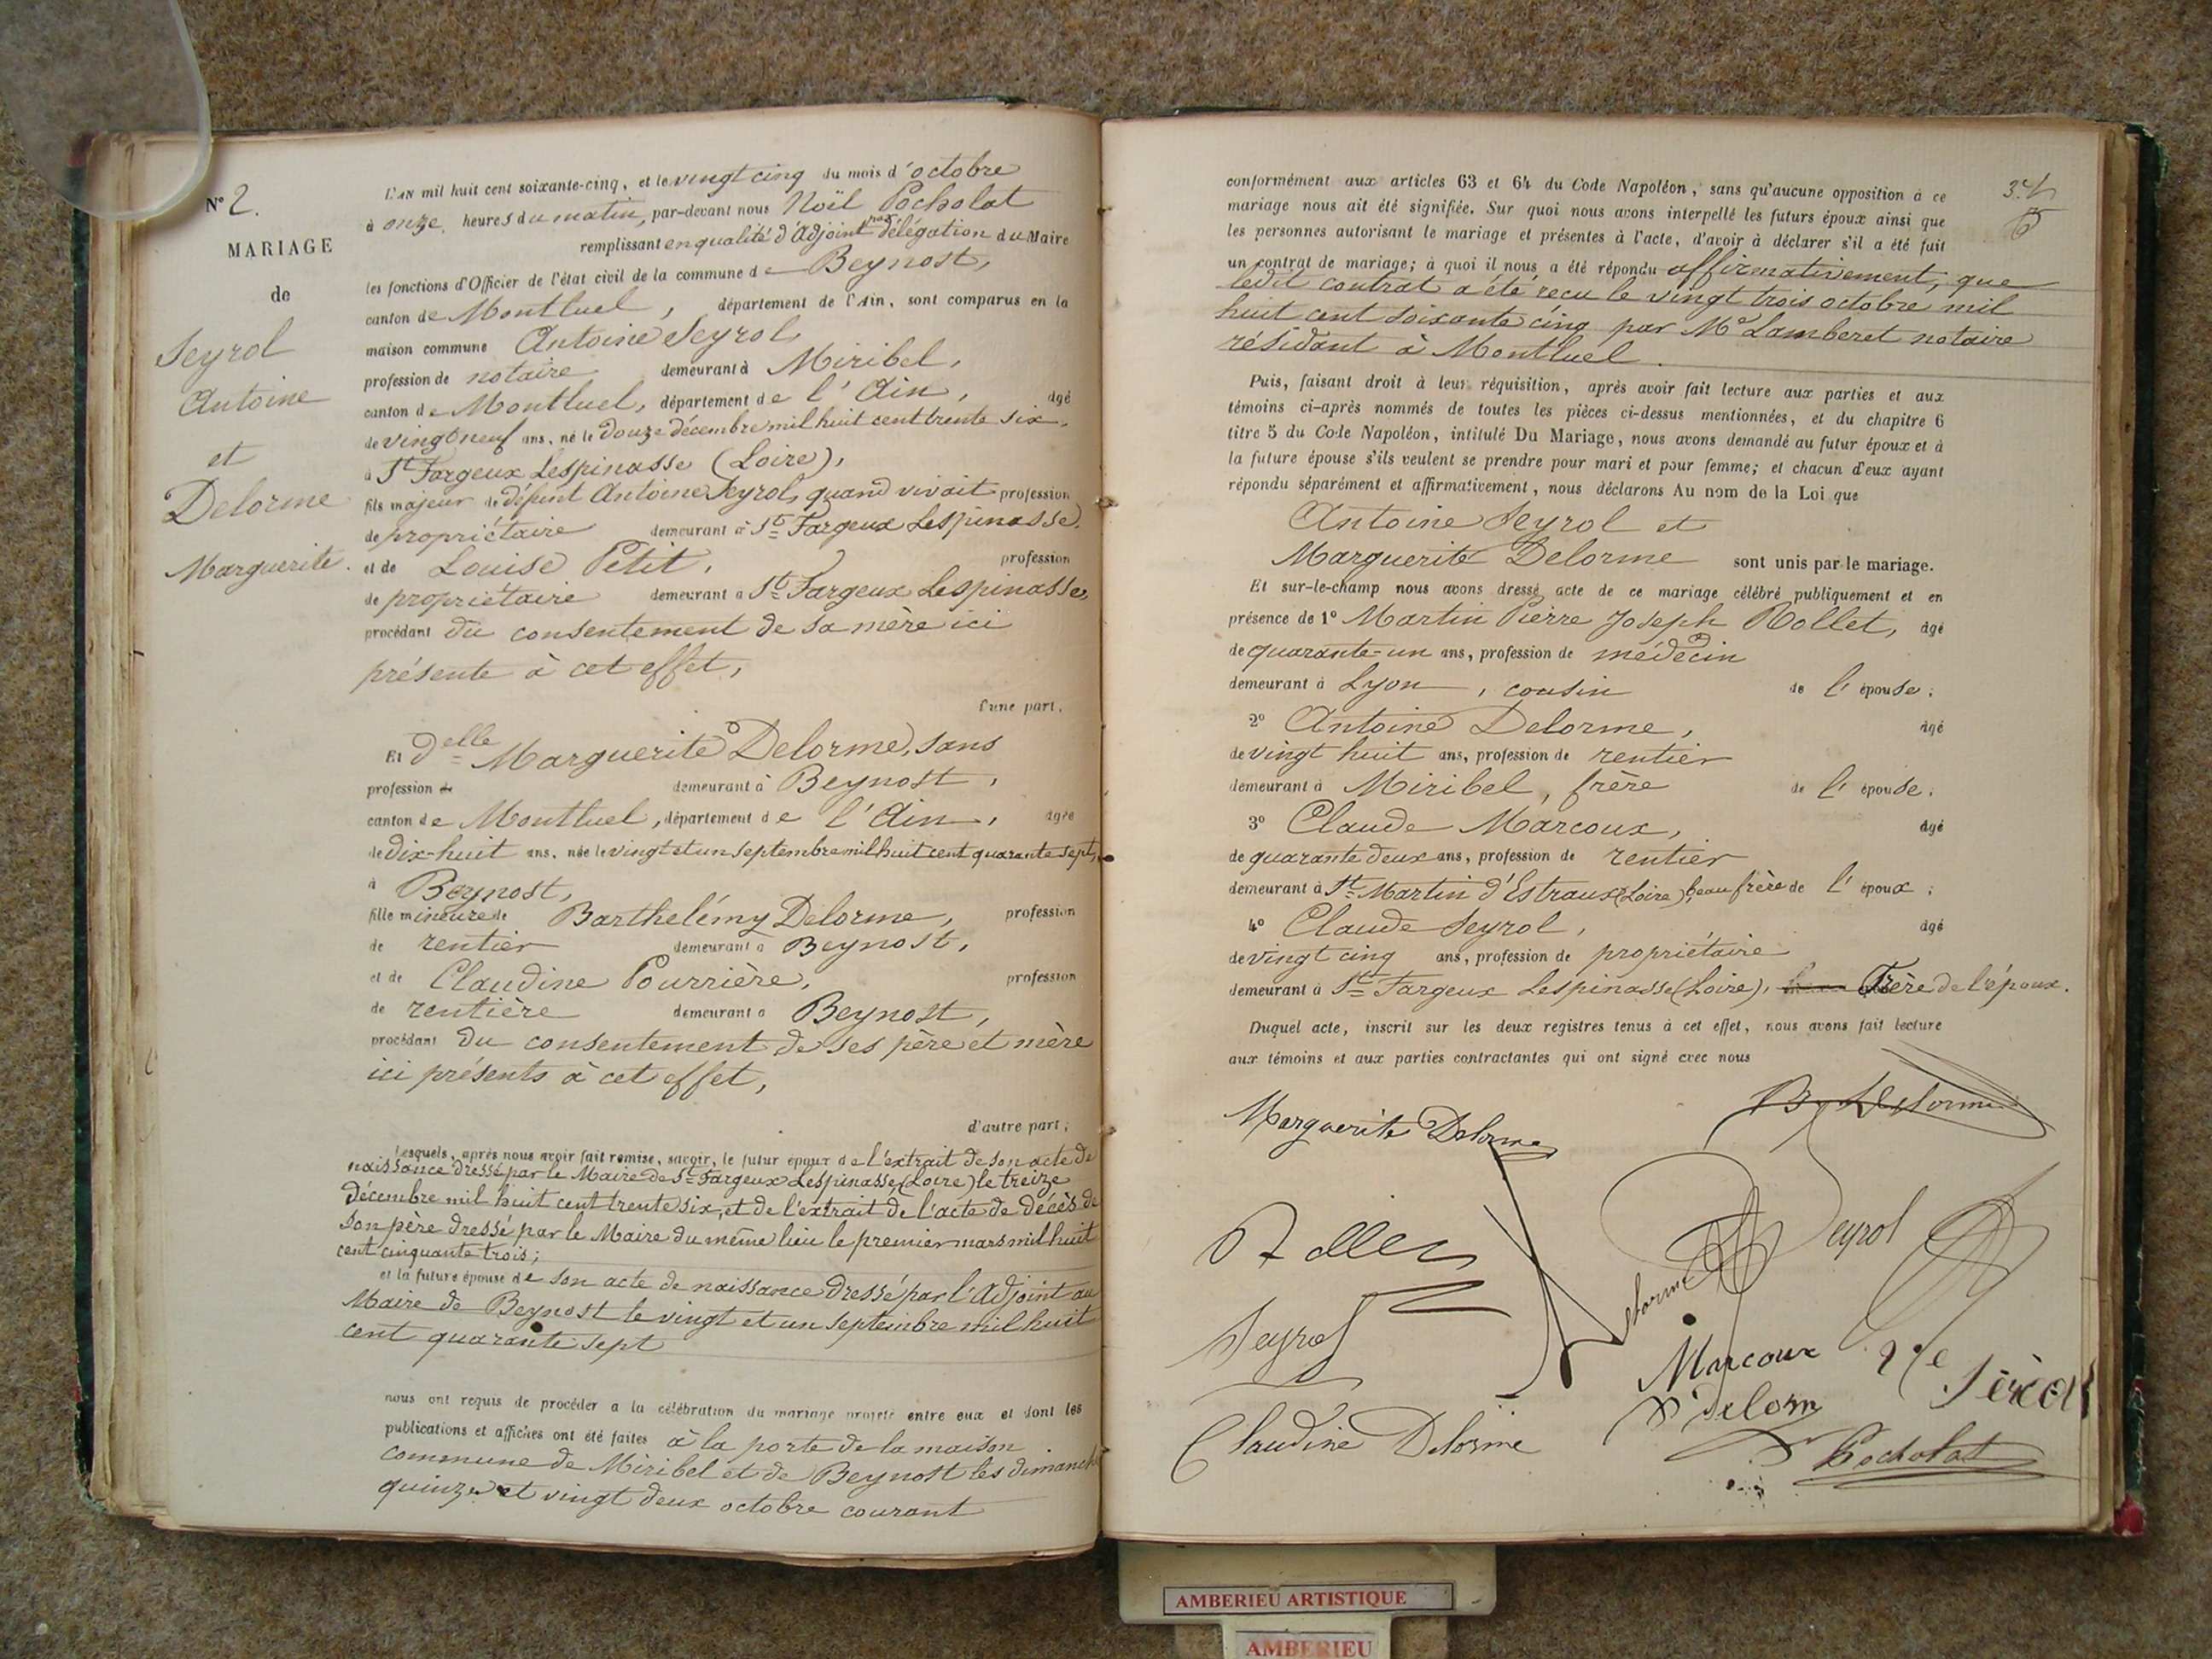 N° 2.
MARIAGE
de
Seyrol
Antoine
et
Delorme
Marguerite.
L'AN mil huit cent soixante-cinq, et le vingt cinq du mois d'octobre
à onze heures du matin, par-devant nous Noël Pocholat
remplissant en qualité d'adjoint par délégation du Maire
les fonctions d'Officier de l'état civil de la commune de Beynost,
canton de Montluel, département de l'Ain, sont comparus en la
maison commune Antoine Seyrol,
profession de notaire demeurant à Miribel,
canton de Montluel, département de l'Ain, âgé
de vingt neuf ans, né le douze décembre mil huit cent trente six,
à St Fargeux Lespinasse (Loire),
fils majeur de défunt Antoine Seyrol, quand vivait profession
de propriétaire demeurant à St Fargeux Lespinasse,
et de Louise Petit, profession
de propriétaire demeurant à St Fargeux Lespinasse,
procédant du consentement de sa mère ici
présente à cet effet,
d'une part,
Et delle Marguerite Delorme, sans
profession de demeurant à Beynost,
canton de Montluel, département de l'Ain, âgée
de dix-huit ans, née le vingt et un septembre mil huit cent quarante sept,
à Beynost,
fille mineure de Barthelémy Delorme, profession
de rentier demeurant à Beynost,
et de Claudine Pourrière, profession
de rentière demeurant à Beynost,
procédant du consentement de ses père et mère
ici présents à cet effet,
d'autre part;
Lesquels, après nous avoir fait remise, savoir, le futur époux de l'extrait de son acte de
naissance dressé par le Maire de St Fargeux Lespinasse (Loire) le treize
décembre mil huit cent trente six, et de l'extrait de l'acte de décès de
son père dressé par le Maire du même lieu le premier mars mil huit
cent cinquante trois;
et la future épouse de son acte de naissance dressé par l'Adjoint au
Maire de Beynost le vingt et un septembre mil huit
cent quarante sept
nous ont requis de procéder à la célébration du mariage projeté entre eux et dont les
publications et affiches ont été faites à la porte de la maison
commune de Miribel et de Beynost les dimanche
quinze et vingt deux octobre courant
conformément aux articles 63 et 64 du Code Napoléon, sans qu'aucune opposition à ce
mariage nous ait été signifiée. Sur quoi nous avons interpellé les futurs époux ainsi que
les personnes autorisant le mariage et présentes à l'acte, d'avoir à déclarer s'il a été fait
un contrat de mariage; à quoi il nous a été répondu affirmativement, que
ledit contrat a été reçu le vingt trois octobre mil
huit cent soixante cinq par Me Lamberet notaire
résidant à Montluel.
Puis, faisant droit à leur réquisition, après avoir fait lecture aux parties et aux
témoins ci-après nommés de toutes les pièces ci-dessus mentionnées, et du chapitre 6
titre 5 du Code Napoléon, intitulé Du Mariage, nous avons demandé au futur époux et à
la future épouse s'ils veulent se prendre pour mari et pour femme; et chacun d'eux ayant
répondu séparément et affirmativement, nous déclarons Au nom de la Loi que
Antoine Seyrol et
Marguerite Delorme sont unis par le mariage.
Et sur-le-champ nous avons dressé acte de ce mariage célébré publiquement et en
présence de 1° Martin Pierre Joseph Rollet, âgé
de quarante-un ans, profession de médecin
demeurant à Lyon, cousin de l'épouse;
2° Antoine Delorme, âgé
de vingt huit ans, profession de rentier
demeurant à Miribel, frère de l'épouse;
3° Claude Marcoux, âgé
de quarante deux ans, profession de rentier
demeurant à St Martin d'Estraux (Loire), beau frère de l'époux;
4° Claude Seyrol, âgé
de vingt cinq ans, profession de propriétaire
demeurant à St Fargeux Lespinasse (Loire), Frère de l'époux.
Duquel acte, inscrit sur les deux registres tenus à cet effet, nous avons fait lecture
aux témoins et aux parties contractantes qui ont signé avec nous
Marguerite Delorme
By Delorme
Rollet
Seyrol
Seyrol
Delorme
Marcoux
Claudine Delorme
Delorm
Pocholat
AMBERIEU ARTISTIQUE
AMBERIEU